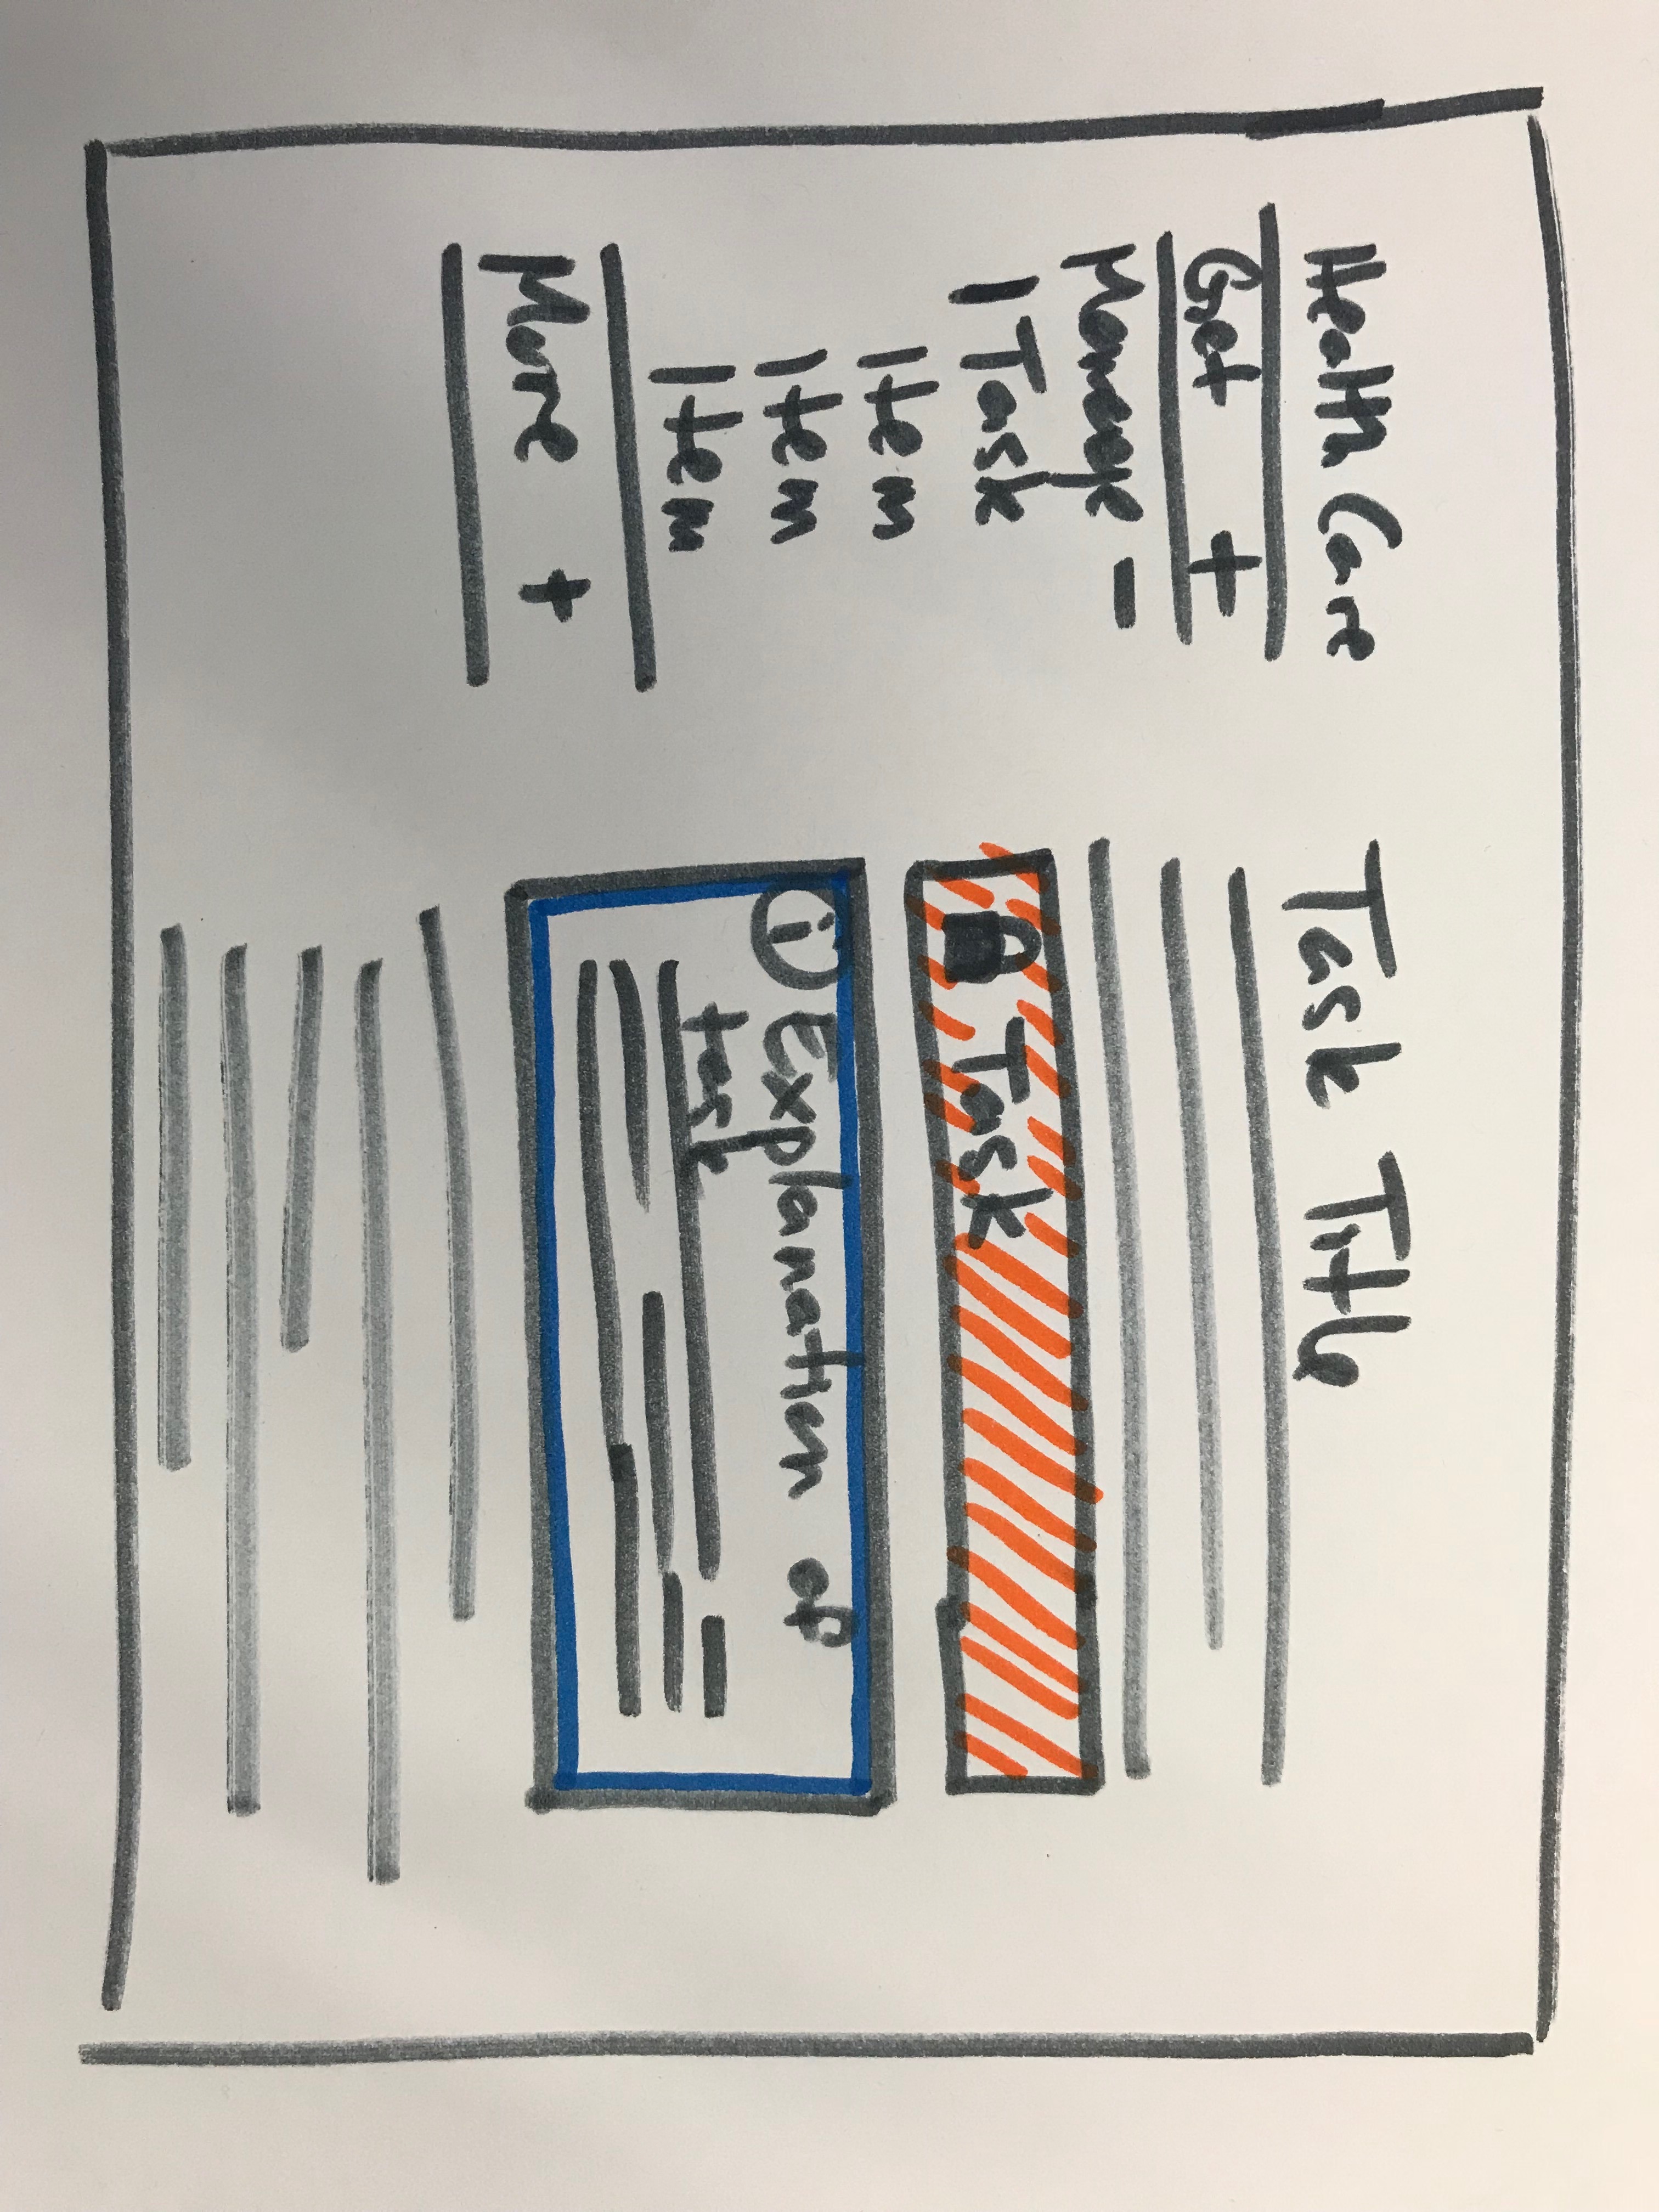 Health Care
Get +
Manage -
| Task
Item
Item
Item
More +
Task Title
Task
i Explanation of
task